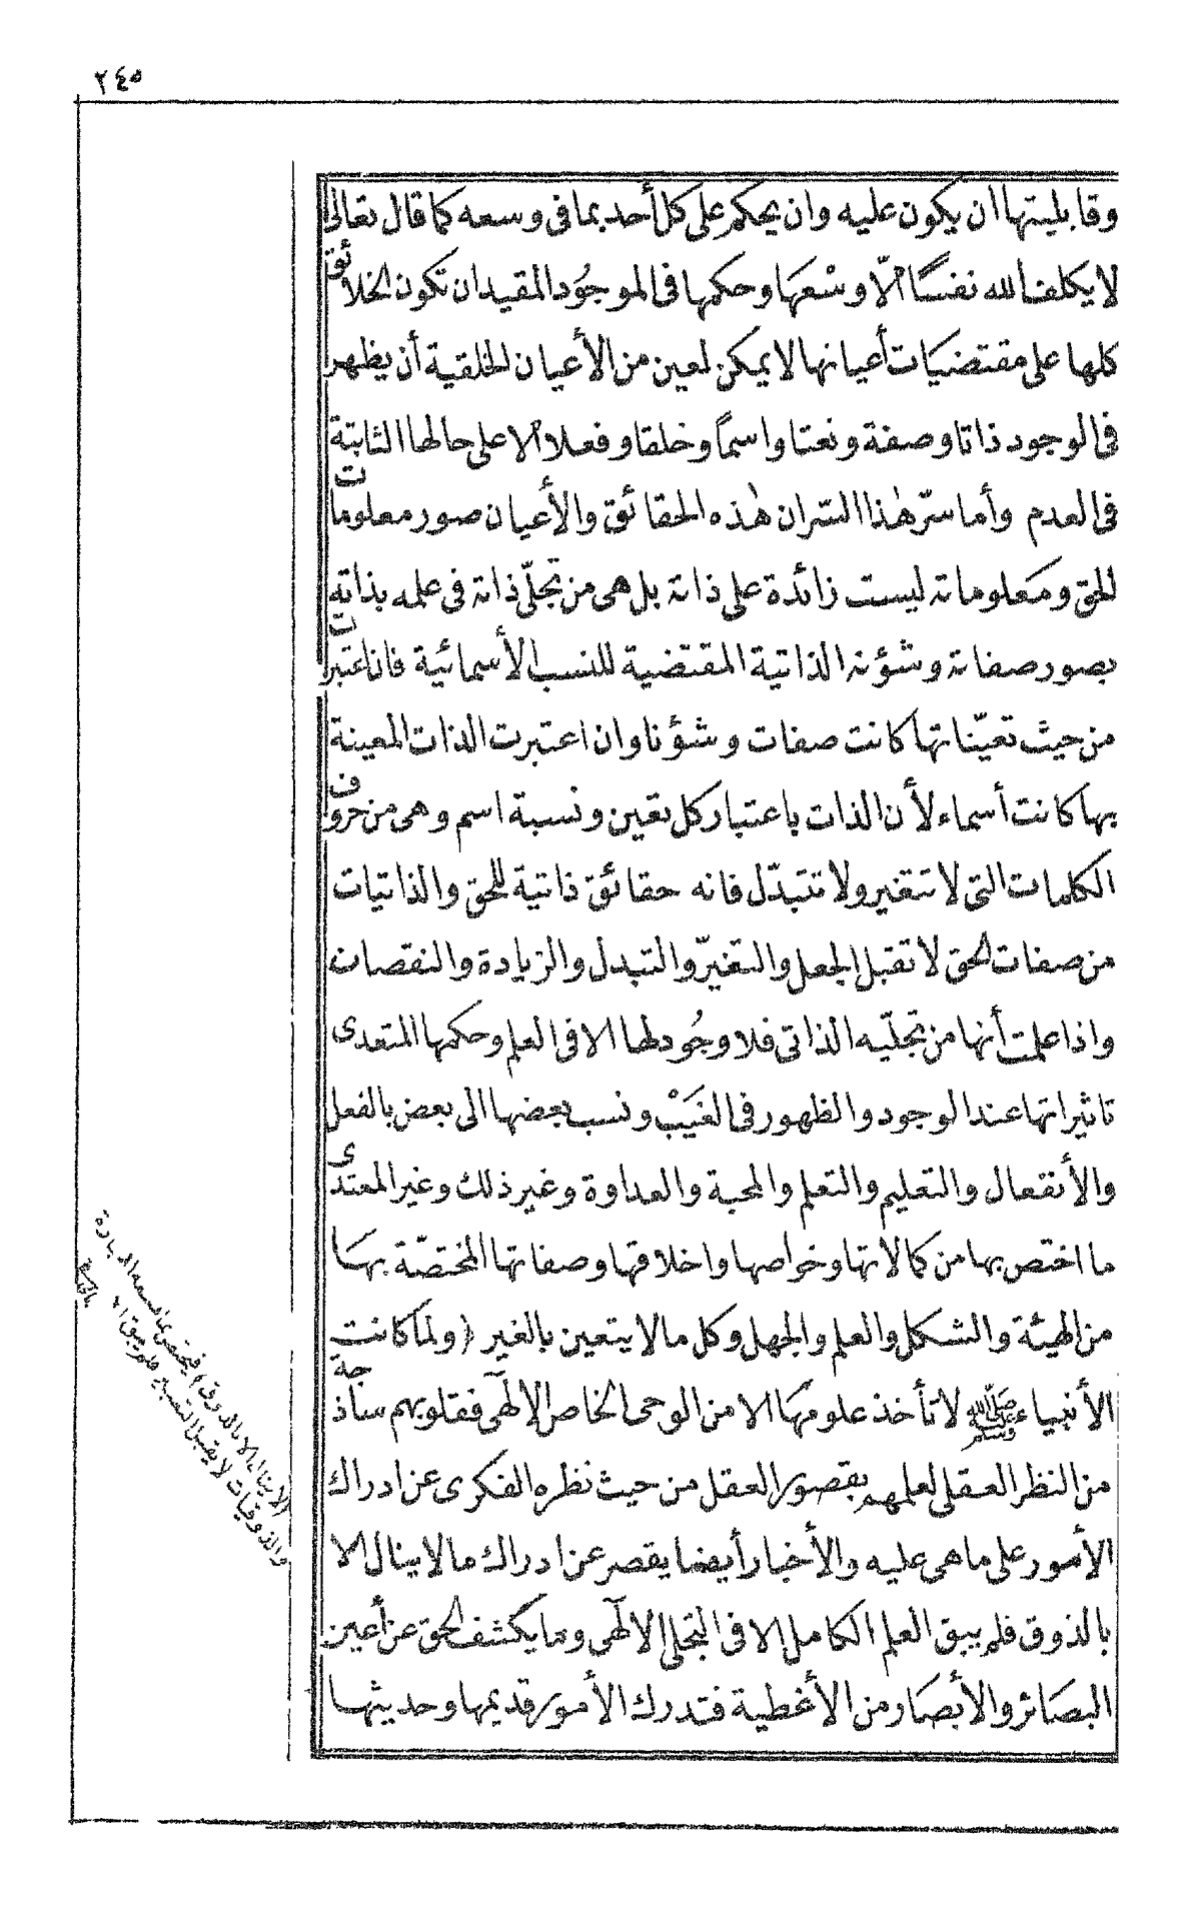 ٢٤٥
وقابليتها ان يكون عليه وان يحكم على كل أحد بما فى وسعه كما قال تعالى
لا يكلف الله نفسًا الّا وسْعَهَا وحكمها فى الموجُود المقيد ان تكون الخلائق
كلها على مقتضيَات أعيانها لا يمكن لمعين من الأعيان الخلقية أن يظهر
فى الوجود ذاتا وصفة ونعتا واسمًا وخلقا وفعلا الا على حالها الثابتة
فى العدم وأما سرّ هٰذا السّر ان هٰذه الحقائق والأعيان صور معلومات
للحق ومَعلوماته ليست زائدة على ذاته بل هى من تجلّى ذاته فى علمه بذاته
بصور صفاته وشؤنه الذاتية المقتضية للنسب الأسمائية فان اعتبرت
من حيث تعيّناتها كانت صفات وشؤنا وان اعتبرت الذات المعينة
بها كانت أسماء لأن الذات باعتبار كل تعين ونسبة اسم وهى من حروف
الكلمات التى لا تتغير ولا تتبدّل فانه حقائق ذاتية للحق والذاتيات
من صفات الحق لا تقبل الجعل والتغيّر والتبدل والزيادة والنقصان
واذا علمت أنها من تجلّيه الذاتى فلا وجُود لها الا فى العلم وحكمها المتعدى
تاثيراتها عند الوجود والظهور فى الغيَبْ ونسب بعضها الى بعض بالفعل
والأنفعال والتعليم والتعلم والمحبة والعداوة وغير ذلك وغير المعتدى
ما اختص بها من كمالاتها وخواصها واخلاقها وصفاتها المختصّة بهَا
من الهيئة والشكل والعلم والجهل وكل ما لا يتعين بالغير (ولما كانت
الأنبياء ﷺ لا تأخذ علومهَا الا من الوحى الخاص الإلٓهى فقلوبهم ساذجة
من النظر العقلى لعلمهم بقصور العقل من حيث نظره الفكرى عن ادراك
الأمور على ما هى عليه والأخبار أيضا يقصر عن ادراك ما لا ينال الا
بالذوق فلم يبق العلم الكامل الا فى التجلى الالٓهى وما يكشف الحق عن أعين
البصَائر والأبصَار من الأغطية فتدرك الأمور قديمها وحديثها
والذوقيات لا يقبل التعبير